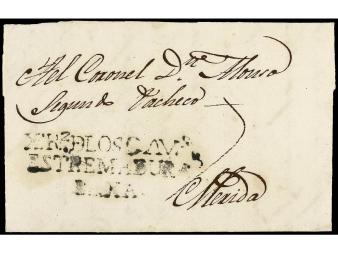 Al Coronel Dn. Alonso
Segundo Pacheco
DLOS CAV
ESTREMADURA
BAXA
Merida